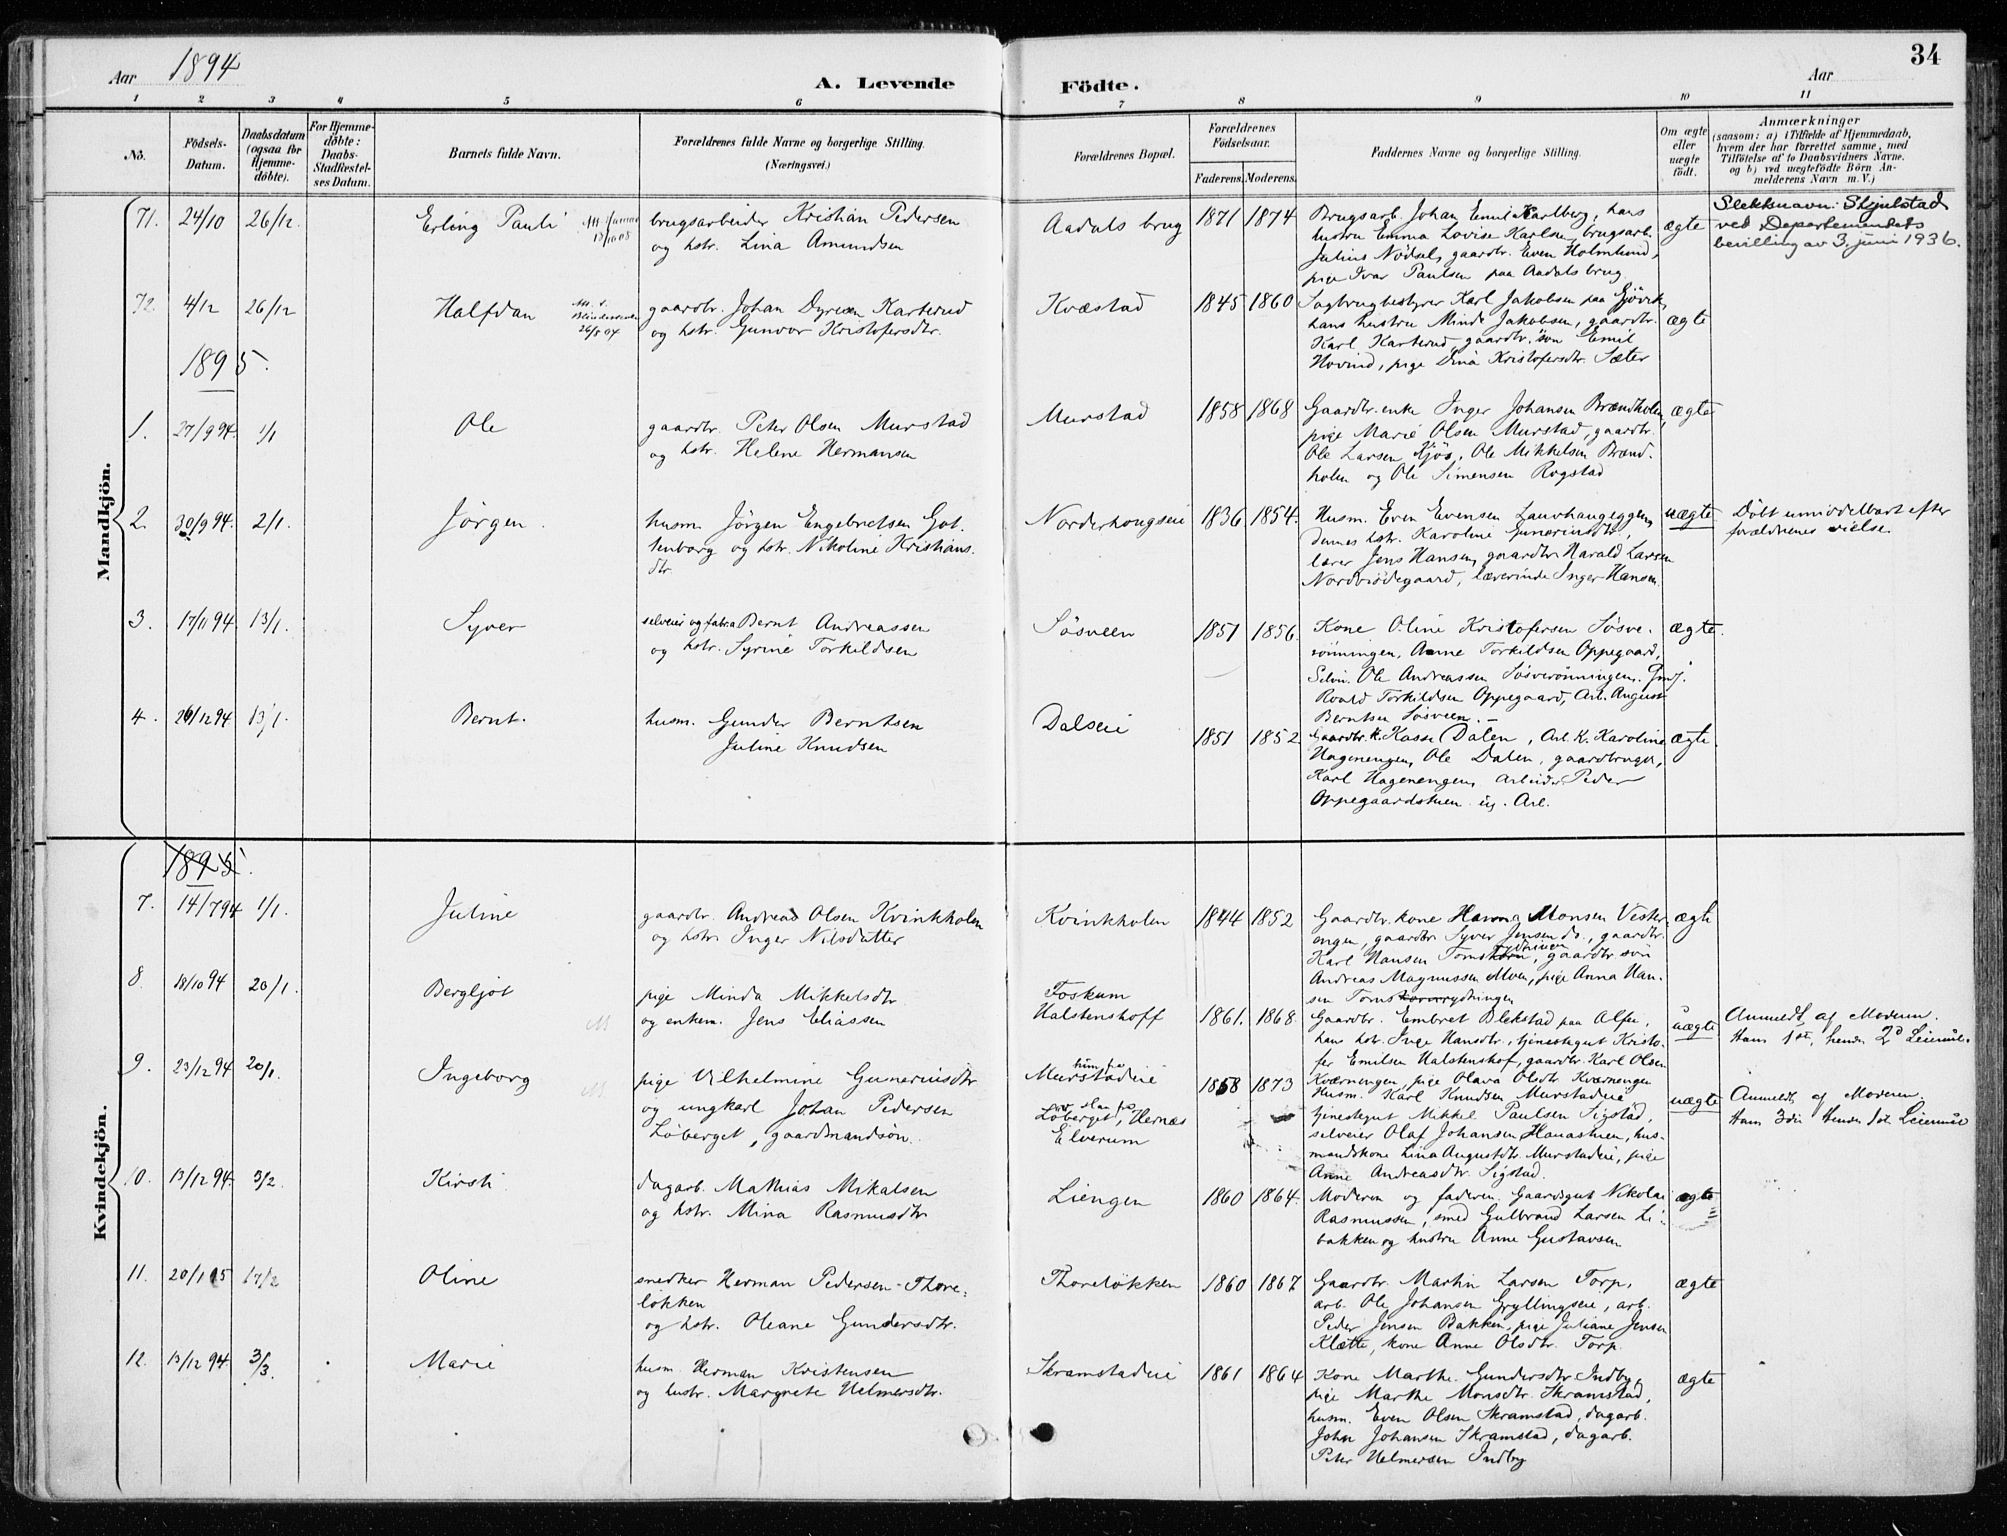 Aar 1894
A. Levende
Födte.
Aar
34
1 2 3 4 5 6 7 8 9 10 11
Nö.
Födsels-Datum.
Daabsdatum (ogsaa for Hjemme-döbte).
For Hjemme-döbte: Daabs-Stadfæstel-ses Datum.
Barnets fulde Navn.
Forældrenes fulde Navne og borgerlige Stilling.
(Næringsvei.)
Forældrenes Bopæl.
Forældrenes Födselsaar.
Faderens. Moderens.
Faddernes Navne og borgerlige Stilling.
Om ægte eller uægte födt.
Anmærkninger
(saasom: a) i Tilfælde af Hjemmedaab,
hvem der har forrettet samme, med
Tilföielse af to Daabsvidners Navne.
og b) ved uægtefödte Börn An-
melderens Navn m. V.)
Mandkjön.
71. 24/10 26/12. Erling Pauli
brugsarbeider Kristian Pedersen
og hstr. Lina Amundsen
Aadals brug 1871 1874
Brugsarb. Johan Emil Karlberg, hans
hustru Emma Lovise Karlsen, brugsarb.
Julius Nödsel, gaardbr. Even Holmlund,
pige Ivar Paulsen paa Aadals brug
ægte
Slektsnavn: Skjulstad
ved Departementets
bevilling av 3. juni 1936.
72. 4/12 26/12 Halfdan
gaardbr. Johan Dyresen Karterud
og hstr. Gunvor Kristofersdtr.
Kvæstad 1845 1860
Sagbrugbestyrer Karl Jakobsen paa Gjövik,
hans hustru Minda Jakobsen, gaardbr.
Karl Karterud, gaardbr. sön Emil
Hovind, pige Dina Kristofersdtr. Sæter
ægte
1895.
1. 27/9 94. 1/1 Ole
gaardbr. Peter Olsen Murstad
og hstr. Helene Hermansen
Murstad 1858 1868
Gaardbr. enke Inger Johansen Brændholen,
pige Marie Olsen Murstad, gaardbr.
Ole Larsen Kjös, Ole Mikkelsen Brænd-
holen og Ole Simensen Rogstad
ægte
2. 30/9 94. 2/1. Jörgen.
husm. Jörgen Engebretsen Got-
tenborg og hstr. Nikoline Kristians-
dtr
Norderhougseie 1836 1854.
Husm. Even Evensen Lauvhaugeggen,
dennes hstr. Karoline Guneriusdtr,
lærer Jens Hansen, gaardbr. Harald Larsen
Nordviödegaard, lærerinde Inger Hansen
uægte
Döbt umiddelbart efter
forældrenes vielse.
3. 17/11 94 13/1. Syver
selveier og Bernt Andreassen
og hstr. Syrine Torkildsen
Sösveen 1851 1856.
Kone Oline Kristofersen Sösve-
rönningen, Anne Torkildsen Oppegaard,
Selv. Ole Andreassen Sösverönningen,
Roald Torkildsen Oppegaard, Arb. August
Berntsen Sösveen. –
ægte.
4. 26/12 94 13/1. Bernt.
husm. Gunder Berntsen
Juline Knudsen
Dalseie 1851 1852
Gaardbr. K. Kasse Dalen, Arb. K. Karoline
Hagenengen, Ole Dalen, gaardbruger,
Karl Hagenengen, Arbeider Peder
Oppegaardstuen. ug. Arb.
ægte.
Kvindekjön.
1895.
7. 14/7 94 1/1. Juline
gaardbr. Andreas Olsen Kvinkholen
og hstr. Inger Nilsdatter
Kvinkholen 1844 1852
Gaardbr. kone Hanna Monsen Vester-
engen, gaardbr. Syver Jensen do., gaardbr.
Karl Hansen Tomsrydningen, gaardbr. sön
Andreas Magnussen Moen, pige Anna Han-
sen Tomsrydningen
ægte
8. 18/10 94 20/1. Bergljot
pige Minda Mikkelsdtr
og enkem. Jens Eliassen
Foskum
Halstenshoff 1861. 1868.
Gaardbr. Embret Blekstad paa Alfse,
hans hstr. Inge Hansdtr., tjenestegut Kristo-
fer Emilsen Halstenshof, gaardbr. Karl Olsen
Kværningen, pige Olava Olsdtr. Kværningen
uægte
Anmeldt af Moderen.
Hans 1ste, hendes 2d Leiermål.
9. 23/12 94 20/1. Ingeborg
pige Vilhelmine Guneriusdtr
og ungkarl Johan Pedersen
Löberget, gaardmandsön.
Murstadeie
Löberget, Hernæs
Elverum
1868 1873
Husm. Karl Knudsen Murstadeie
tjenestegut Mikkel Paulsen Sigstad,
selveier Olaf Johansen Hauastuen, hus-
mandskone Lina Augustdtr. Murstadeie, pige
Anne Andreasdtr. Sigstad.
uægte
Anmeldt af Moderen.
Hans 3die Hendes 1ste Leiermål
10. 13/12 94. 3/2. Kirsti.
dagarb. Mathias Mikalsen
og hstr. Mina Rasmusdtr
Liengen 1860 1864.
Moderen og faderen. Gaardsgut Nikolai
Rasmussen, smed Gulbrand Larsen Li-
bakken og hustru Anne Gustavsen
ægte
11. 20/1 95 17/2 Oline
snedker Herman Pedersen Thore-
lökken
og hstr. Oleane Gundersdtr.
Thorelökken 1860 1867
Gaardbr. Martin Larsen Torp,
arb. Ole Johansen Gryllingseie, arb.
Peder Jensen Bakken, pige Juliane Jensen
Klætte, kone Anne Olsdtr. Torp.
ægte
12. 13/12 94. 3/3. Marie
husm. Herman Kristensen
og hustr. Margrete Helmersdtr.
Skramstadeie 1861 1864
Kone Marthe Gundersdtr Indby,
pige Marthe Monsdtr. Skramstad,
husm. Even Olsen Skramstad, dagarb.
John Johansen Skramstad, dagarb.
Peter Helmersen Indby
ægte